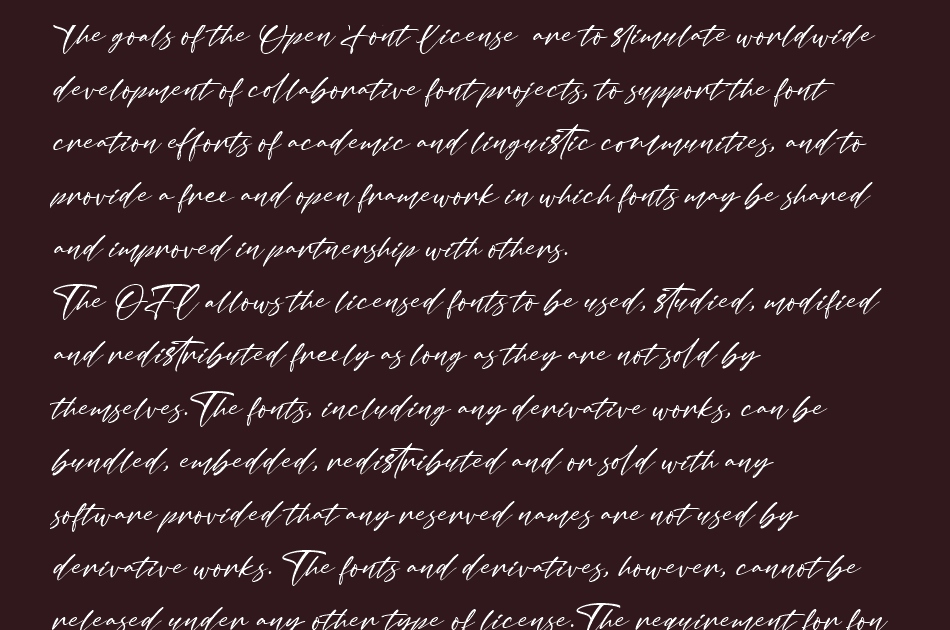 The goals of the Open Font License are to stimulate worldwide
development of collaborative font projects, to support the font
creation efforts of academic and linguistic communities, and to
provide a free and open framework in which fonts may be shared
and improved in partnership with others.
The OFL allows the licensed fonts to be used, studied, modified
and redistributed freely as long as they are not sold by
themselves. The fonts, including any derivative works, can be
bundled, embedded, redistributed and or sold with any
software provided that any reserved names are not used by
derivative works. The fonts and derivatives, however, cannot be
released under any other type of license. The requirement for fon